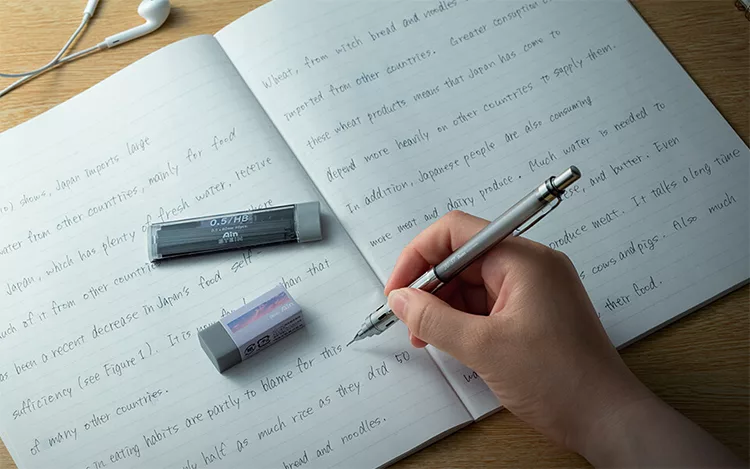 ) shows, Japan imports large
water from other countries, mainly for food
Japan, which has plenty of fresh water, receive
much of it from other countries
as been a recent decrease in Japan's food self-
sufficiency (see Figure 1). It is than that
of many other countries.
in eating habits are partly to blame for this
half as much rice as they did 50
bread and noodles.
0.5/HB
Ain
STEIN
Wheat, from witch bread and noodles
imported from other countries. Greater consuption of
these wheat products means that Japan has come to
depend more heavily on other countries to supply them.
In addition, Japanese people are also consuming
more meat and dairy produce. Much water is needed to
, and butter. Even
produce meat. It talks a long time
cows and pigs. Also much
their food.